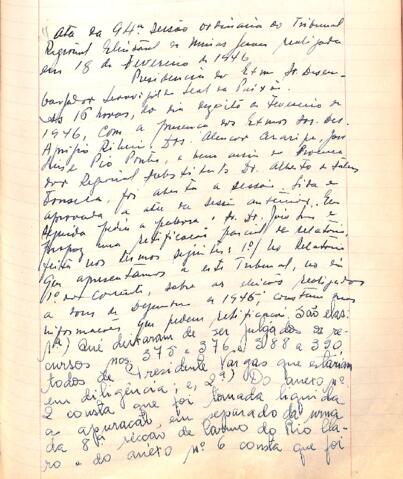 Ata da 94ª sessão ordinaria do Tribunal
Regional Eleitoral de Minas Gerais, realizada
em 18 de Fevereiro de 1946
Presidencia do Exm. Sr. Desem-
bargador Leal da Paixão.
Ás 16 horas, do dia dezoito de Fevereiro de
1946, com a presença dos Exmos. Srs. Des.
Aprigio Ribeiro, Drs. Alencar Araripe, José
e Pio Pontes, e bem assim o Procura-
dor Regional Substituto Dr. Alberto
Fonseca, foi aberta a sessão, lida e
aprovada a ata da sessão anterior. Em
seguida pediu a palavra o Sr. Dr. José e
propoz uma retificação parcial do relatório,
feita nos termos seguintes: 1º/ No Relatório
que apresentamos a este Tribunal, no dia
1º do corrente, sobre as eleições realizadas
a dois de Dezembro de 1945, constam duas
informações que pedem retificação. São elas:
1ª) Que deixaram de ser julgados os re-
cursos nos 375 a 376 e 388 a 390,
todos de Presidente Vargas que estariam
em diligência; e, 2ª) Do anexo nº
2 consta que foi tomada liquida
a apuração, em separado da urna
da 8ª secção de Carmo do Rio Cla-
ro e do anéxo nº 6 consta que foi